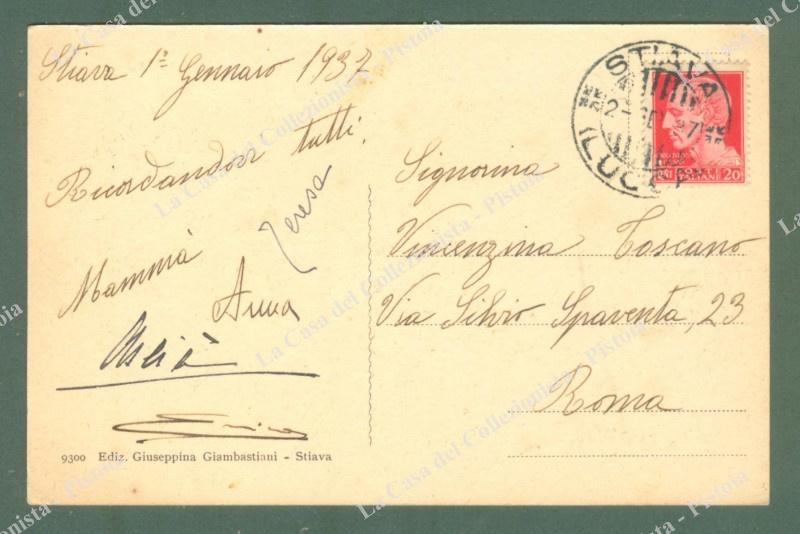 Stiava 1º Gennaro 1937
Ricordandoci tutti.
Teresa
Mammà
Anna
9300 Ediz. Giuseppina Giambastiani - Stiava
STIAVA
(LUCCA)
20
Signorina
Vincenzina Toscano
Via Silvio Spaventa, 23
Roma
La Casa del Collezionista - Pistoia